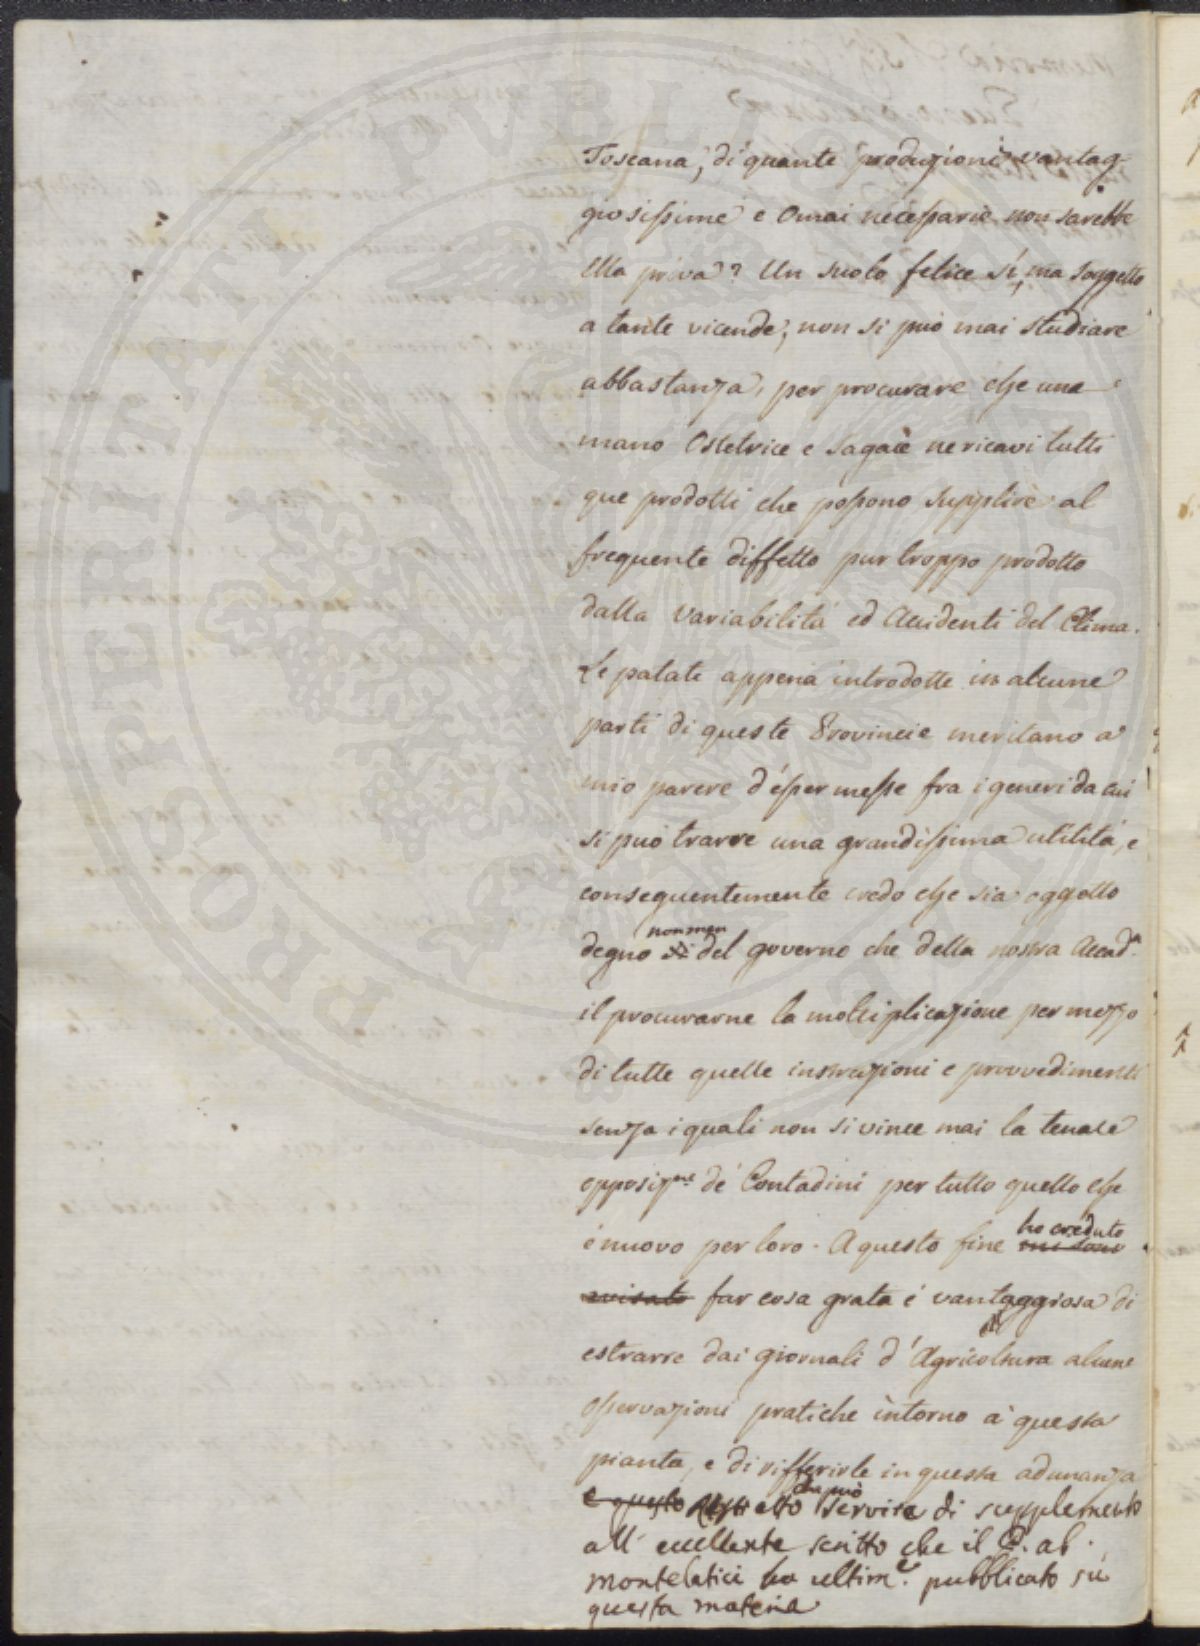 Toscana, di quante produzioni vantag-
giosissime e omai necessarie non sarebbe
ella priva? Un suolo felice sì, ma soggetto
a tante vicende, non si può mai studiare
abbastanza, per procurare che una
mano Ostetrice e sagace ne ricavi tutti
que prodotti che possono supplire al
frequente diffetto pur troppo prodotto
dalla variabilità ed Accidenti del Clima.
Le patate appena introdotte in alcune
parti di queste Provincie meritano a
mio parere d'esser messe fra i generi da cui
si può trarre una grandissima utilità, e
conseguentemente credo che sia oggetto
non men
degno del governo che della nostra Accad.a
il procurarne la moltiplicazione per mezzo
di tutte quelle instruzioni e provvedimenti
senza i quali non si vince mai la tenace
opposiz.ne de' Contadini per tutto quello che
ho creduto
è nuovo per loro. A questo fine mi sono
avisato far cosa grata e vantaggiosa di
estrarre dai giornali d'Agricoltura alcune
osservazioni pratiche intorno a questa
pianta, e di rifferirle in questa adunanza
che può
e questo ristretto servire di supplemento
all' eccellente scritto che il P. ab.
montelatici ha ultim.e pubblicato su
questa materia
PROSPERITATI PUBLICAE AUGENDAE